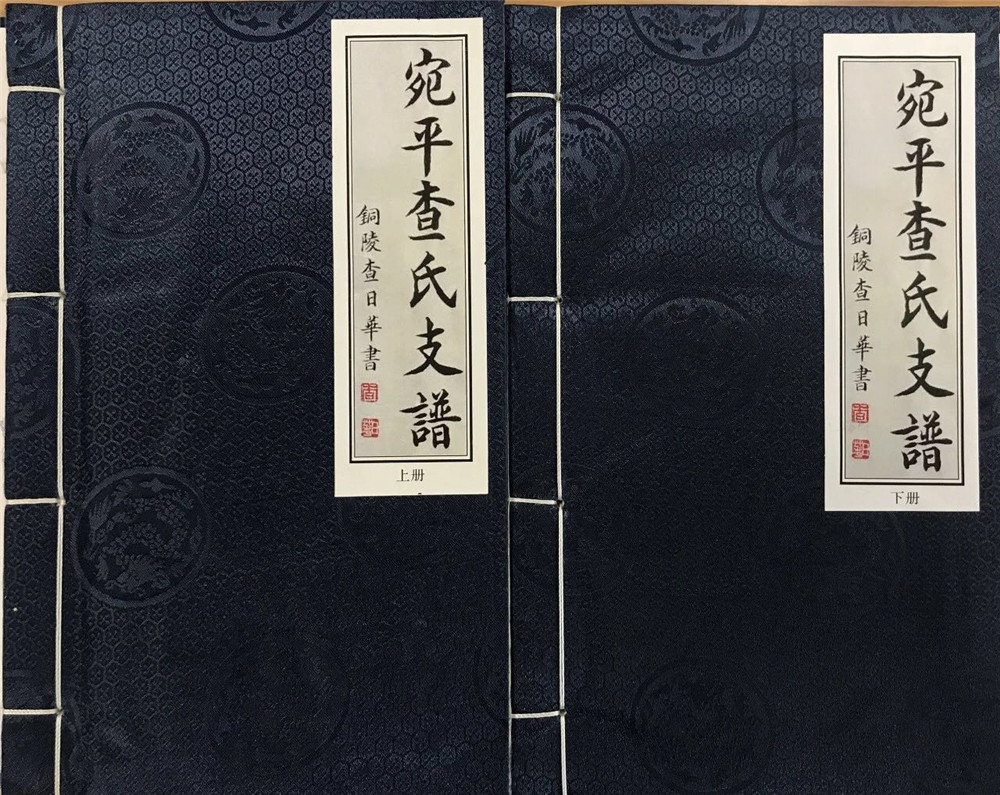 宛平查氏支譜
銅陵查日華書
上册
宛平查氏支譜
銅陵查日華書
下册